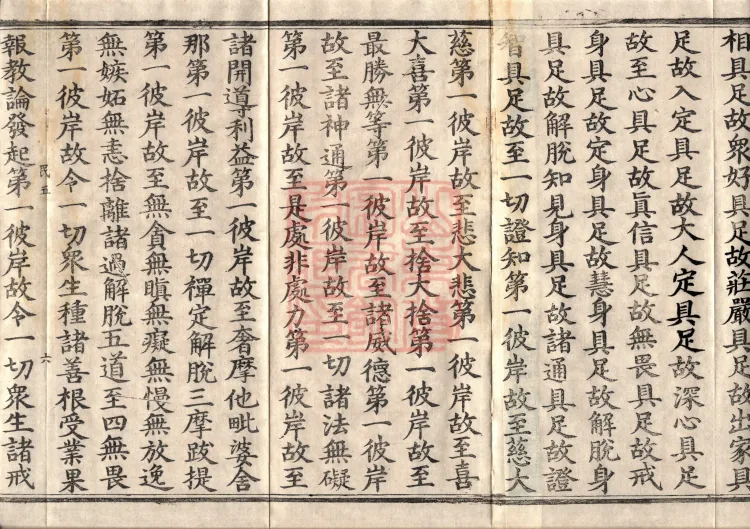 相具足故衆好具足故莊嚴具足故出家具
足故入定具足故大人定具足故深心具足
故至心具足故眞信具足故無畏具足故戒
身具足故定身具足故慧身具足故解脫身
具足故解脫知見身具足故諸通具足故證
智具足故至一切證知第一彼岸故至慈大
慈第一彼岸故至悲大悲第一彼岸故至喜
大喜第一彼岸故至捨大捨第一彼岸故至
最勝無等第一彼岸故至諸威德第一彼岸
故至諸神通第一彼岸故至一切諸法無礙
第一彼岸故至是處非處力第一彼岸故至
諸開導利益第一彼岸故至奢摩他毗婆舍
那第一彼岸故至一切禪定解脫三摩跋提
第一彼岸故至無貪無瞋無癡無慢無放逸
無嫉妬無恚捨離諸過解脫五道至四無畏
第一彼岸故令一切衆生種諸善根受業果
民五 六
報教論發起第一彼岸故令一切衆生諸戒